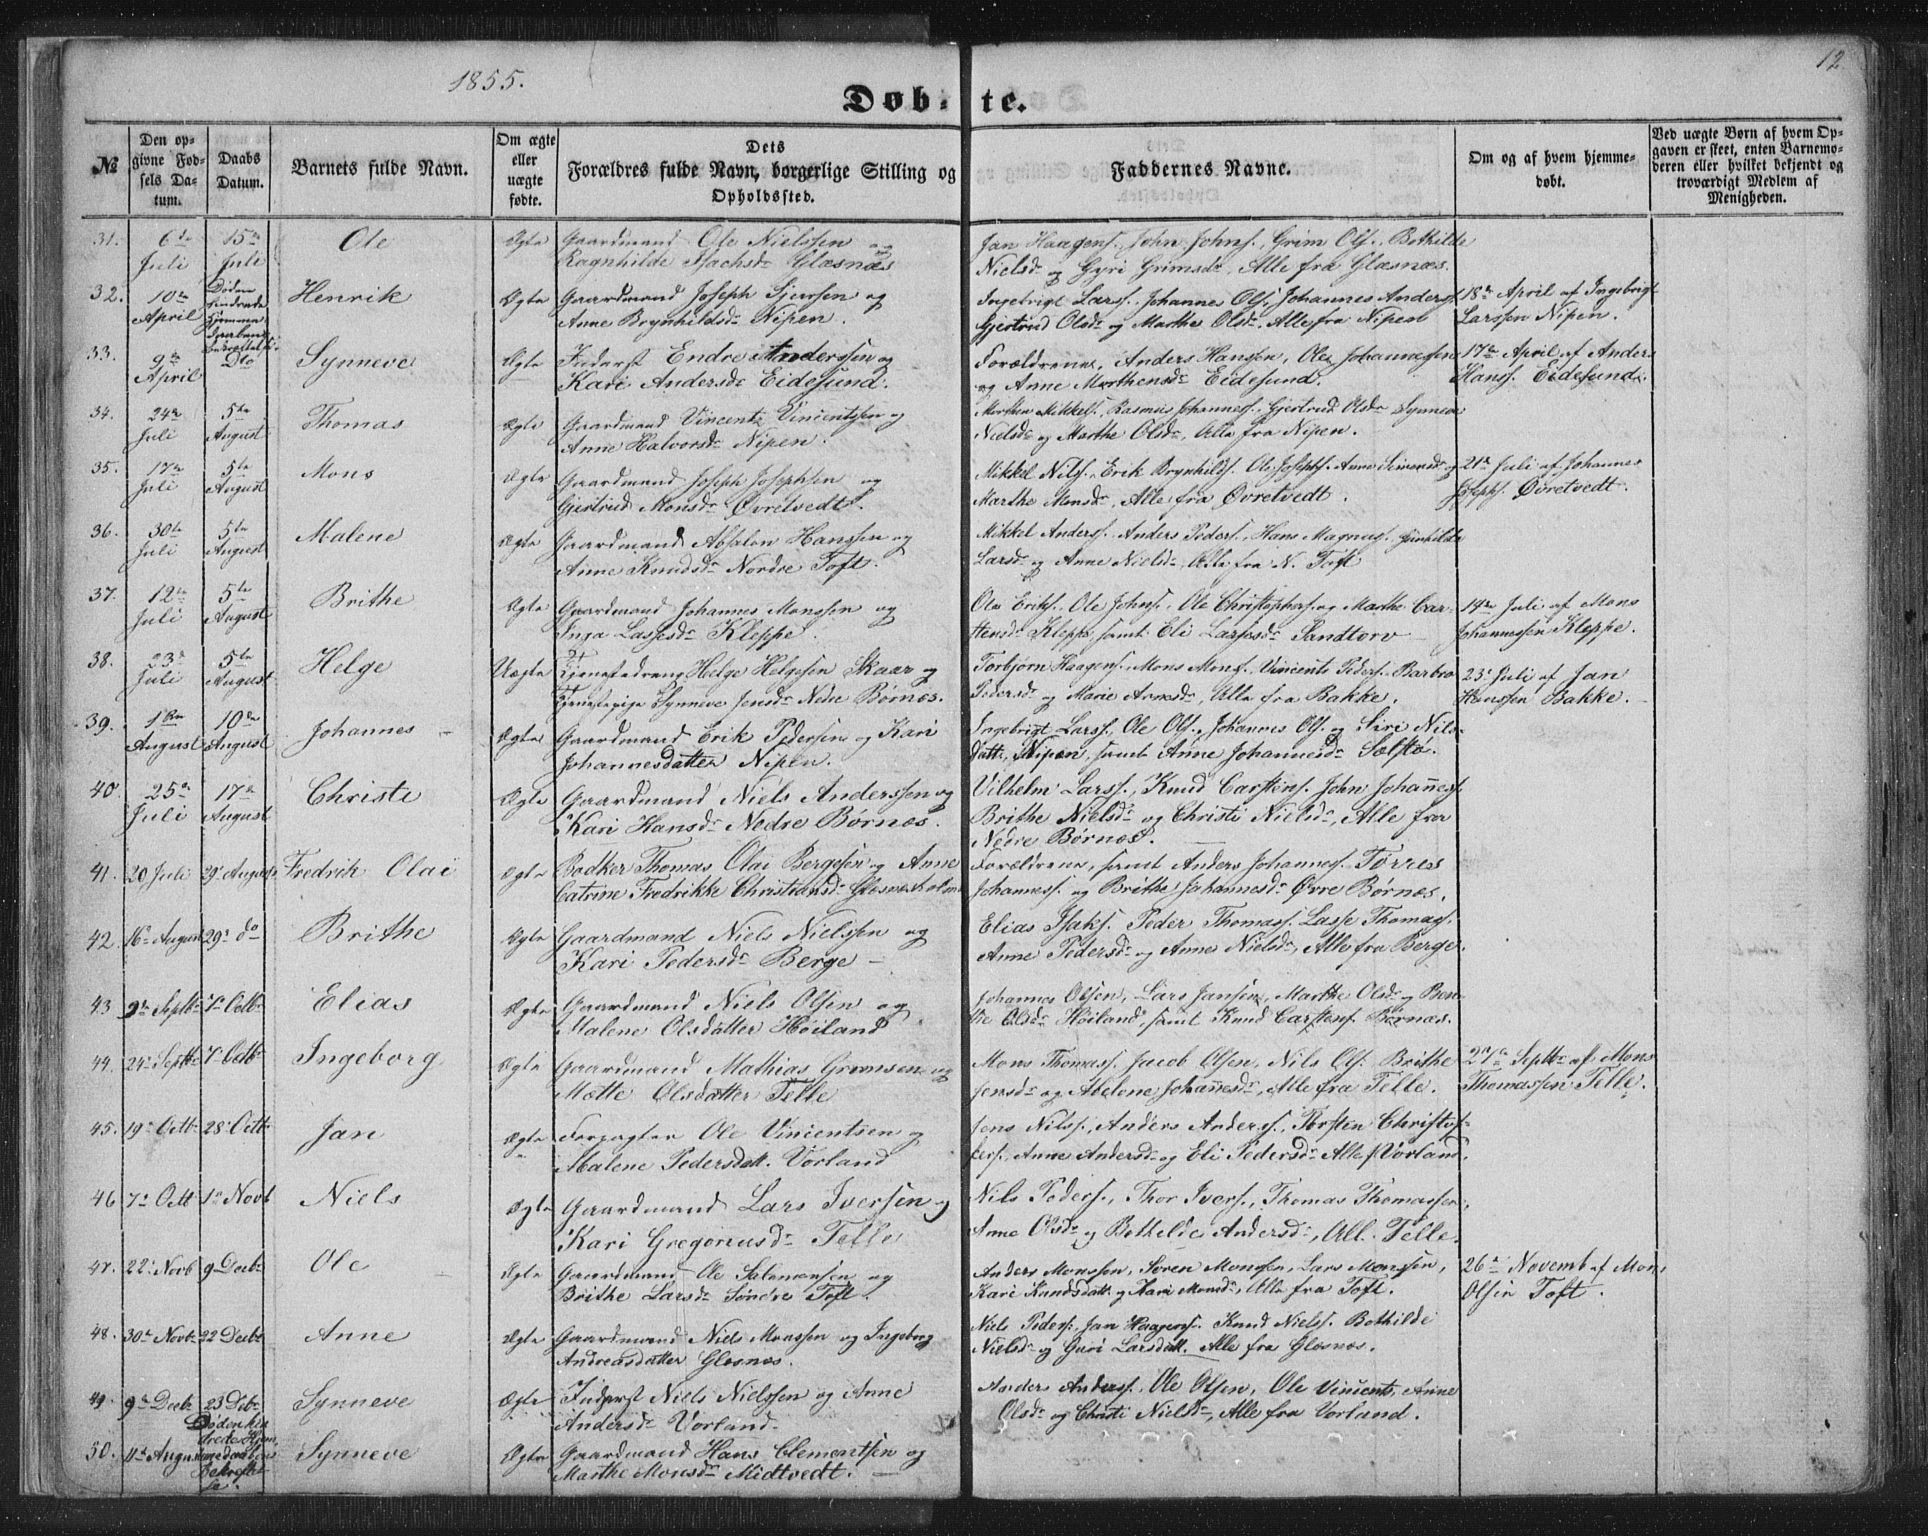 12
1855.
Døbte.
№
Den opgivne Fødsels Datum.
Daabs Datum.
Barnets fulde Navn.
Om ægte eller uægte fødte.
Dets Forældres fulde Navn, borgerlige Stilling og Opholdssted.
Faddernes Navne.
Om og af hvem hjemmedøbt.
Ved uægte Børn af hvem Opgaven er skeet, enten Barnemoderen eller hvilket bekjendt og troværdigt Medlem af Menigheden.
31. 6te Juli 15de Juli Ole Ægte Gaardmand Ole Nielssen og
Ragnhilde Isachsdr Glæsnæs
Jan Haagens. John Johns., Grim Ols., Bothilde
Nielsdr og Gyri Grimsdr, Alle fra Glæsnæs.
32. 10de April Døden hindrede Hjemmedaabens Bekræftelse Henrik Ægte Gaardmand Joseph Sjursen og
Anne Brynhildsdr Nipen.
Ingebrigt Larss. Johannes Ols., Johannes Anders.
Gjertrud Olsdr og Marthe Olsdr, Alle fra Nipen
18de April af Ingebrigt
Larssen Nipen.
33. 9de April Dto Synneve Ægte Inderst Endre Anderssen og
Kari Andersdr Eidesund.
Forældrene, Anders Hanssen, Ole Johannessen
og Anne Marthensdr Eidesund.
17de April af Anders
Hanss. Eidesund.
34. 24de Juli 5te August Thomas Ægte Gaardmand Vincents Vincentssen og
Anne Halvorsdr Nipen.
Morthen Mikkels., Rasmus Johannes., Gjertrud Olsdr Synneve
Nielsdr og Marthe Olsdr, Alle fra Nipen.
35. 17de Juli 5te August Mons Ægte Gaardmand Joseph Josephsen og
Gjertrud Monsdr Øvretvedt.
Mikkel Nils., Erik Brynhilds. Ole Josephs. Anne Simonsdr og
Marthe Monsdr, Alle fra Øvretvedt.
21de Juli af Johannes
Josephs. Øvretvedt.
36. 30te Juli 5te August Malene Ægte Gaardmand Absalon Hanssen og
Anne Knudsdr Nordre Toft.
Mikkel Anders. Anders Peders., Hans Magnus. Gunhilde
Larsdr og Anne Nielsdr, Alle fra N. Toft
37. 12te Juli 5te August Brithe Ægte Gaardmand Johannes Monssen og
Inga Lassesdr Kleppe.
Ole Eriks., Ole Johns., Ole Christophers. og Marthe Carstensdr
Kleppe, samt Eli Larsesdr Sandtorv
14de Juli af Mons
Johannessen Kleppe.
38. 23de Juli 5te August Helge Uægte Tjenestedreng Helge Helgesen Skaar og
Tjenestepige Synneve Jensdr Nedre Børnæs.
Torbjørn Haagens. Mons Mons., Vincents Peders. Barbro
Pedersdr og Marie Arnesdr, Alle fra Bakke.
23de Juli af Jan
Hanssen Bakke.
39. 1ste August 10de August Johannes Ægte Gaardmand Erik Pedersen og Kari
Johannesdatter Nipen.
Ingebrigt Larss., Ole Ols., Johannes Ols. og Siri Nilsdatt.,
Nipen, samt Anne Johannesdr Sælstø.
40. 25de Juli 17de August Christi Ægte Gaardmand Niels Anderssen og
Kari Hansdr Nedre Børnæs.
Vilhelm Larss., Knud Carstens. John Johanness.
Brithe Nielsdr og Christi Nielsdr, Alle fra
Nedre Børnæs.
41. 20 Juli 29 August Fredrik Olai Ægte Bødker Thomas Olai Bergesen og Anne
Catrine Fredrikke Christiansdr Glesnæsholm
Forældrene, samt Anders Johannes. Torres
Johanness. og Brithe Johannesdr Øvre Børnæs.
42. 16de August 29de do Brithe Ægte Gaardmand Niels Nielssen og
Kari Pedersdr Berge
Elias Isaks. Peder Thomass. Lasse Thomas.
Anne Pedersdr og Anne Nielsdr, Alle fra Berge.
43 9de Septbr 7de Octbr Elias Ægte Gaardmand Niels Olsen og
Malene Olsdatter Høiland
Johannes Olsen, Lars Jansen, Marthe Olsdr og Bentte
Olsdr Høiland, samt Knud Carstens. Børnæs.
44. 24de Septbr 7de Octbr Ingeborg Ægte Gaardmand Mathias Grimsen og
Mætte Olsdatter Telle
Mons Thomass. Jacob Olsen, Nils Ols. Brithe
Jensdr og Abelone Johannesdr, Alle fra Telle.
27de Septbr af Mons
Thomassen Telle.
45. 19de Octbr 28de Octbr Jan Ægte Forpagter Ole Vincentsen og
Malene Pedersdatt. Vorland
Jens Nilss., Anders Anders., Torsten Christoffers.,
Anne Andersdr og Eli Pedersdr Alle f. Vorland.
46 7de Octb 1ste Novb Niels Ægte Gaardmand Lars Iversen og
Kari Gregoriusdr Telle
Nils Peders., Thor Ivers., Thomas Thomassen,
Anne Olsdr og Bothilde Andersdr, All. Telle.
47. 22de Novb 9 Decbr Ole Ægte Gaardmand Ole Salamonsen og
Brithe Larsdr Søndre Toft.
Anders Monssen, Søren Monssen, Lars Monssen,
Kari Knudsdatt. og Kari Monsdr, Alle fra Toft.
26de Novemb af Mons
Olsen Toft.
48. 30te Novbr 22 Decbr Anne Ægte Gaardmand Niels Monssen og Ingeborg
Andreasdatter Glesnæs.
Niels Peders. Jan Haagens. Knud Niels. Bothilde
Nielsdr og Guri Larsdatt. Alle fra Glesnæs.
49. 9de Decbr 23 Debr Synneve Ægte Inderst Niels Nielssen og Anne
Andersdr Vorland.
Anders Anders., Ole Olsen, Ole Vincents, Anne
Olsdr og Christi Nielsdr, Alle fra Vorland.
50. 11te August Døden hindrede Hjemmedaabens Bekræftelse. Synneve Ægte Gaardmand Hans Clementsen og
Marthe Monsdr Midtvedt.